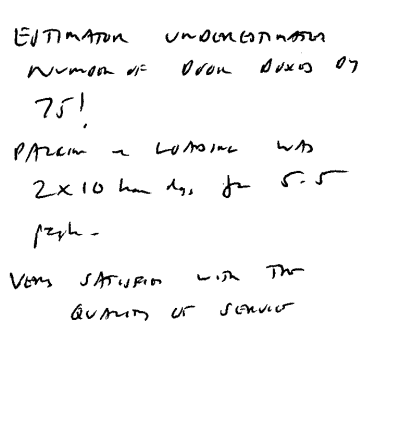 ESTIMATOR UNDERESTIMATED
NUMBER OF BOOK BOXES BY
75!
PACKING & LOADING WAS
2 X 10 hour days for 5.5
people.
VERY SATISFIED WITH THE
QUALITY OF SERVICE